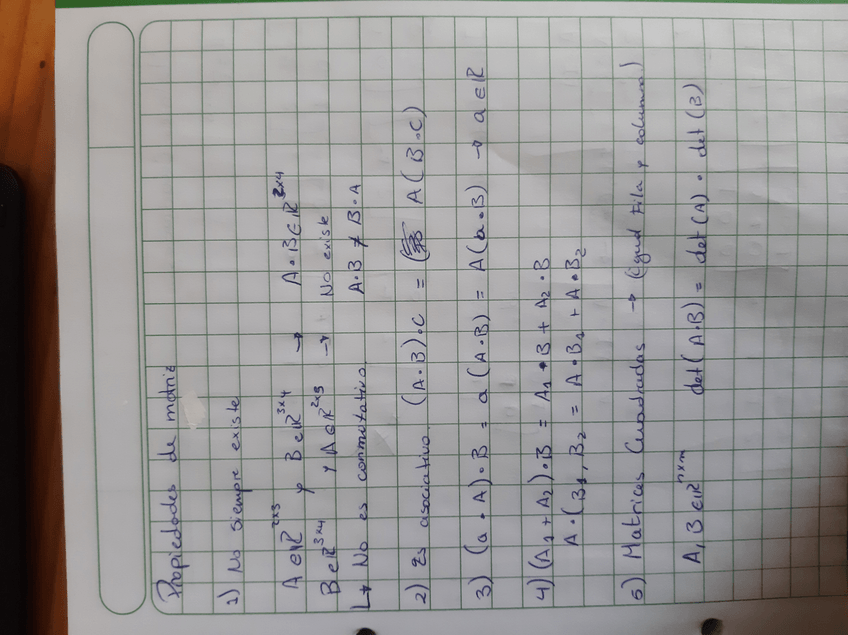 Propiedades de matriz
1) No siempre existe
A ∈ ℝ²ˣ³ y B ∈ ℝ³ˣ⁴ → A·B ∈ ℝ²ˣ⁴
B ∈ ℝ³ˣ⁴ y A ∈ ℝ²ˣ³ → No existe
↳ No es conmutativo. A·B ≠ B·A
2) Es asociativo. (A·B)·C = A(B·C)
3) (a·A)·B = a(A·B) = A(a·B) → a ∈ ℝ
4) (A₁+A₂)·B = A₁·B + A₂·B
A·(B₁, B₂ = A·B₁ + A·B₂
5) Matrices Cuadradas → (igual fila y columna)
A, B ∈ ℝⁿˣⁿ det(A·B) = det(A)·det(B)